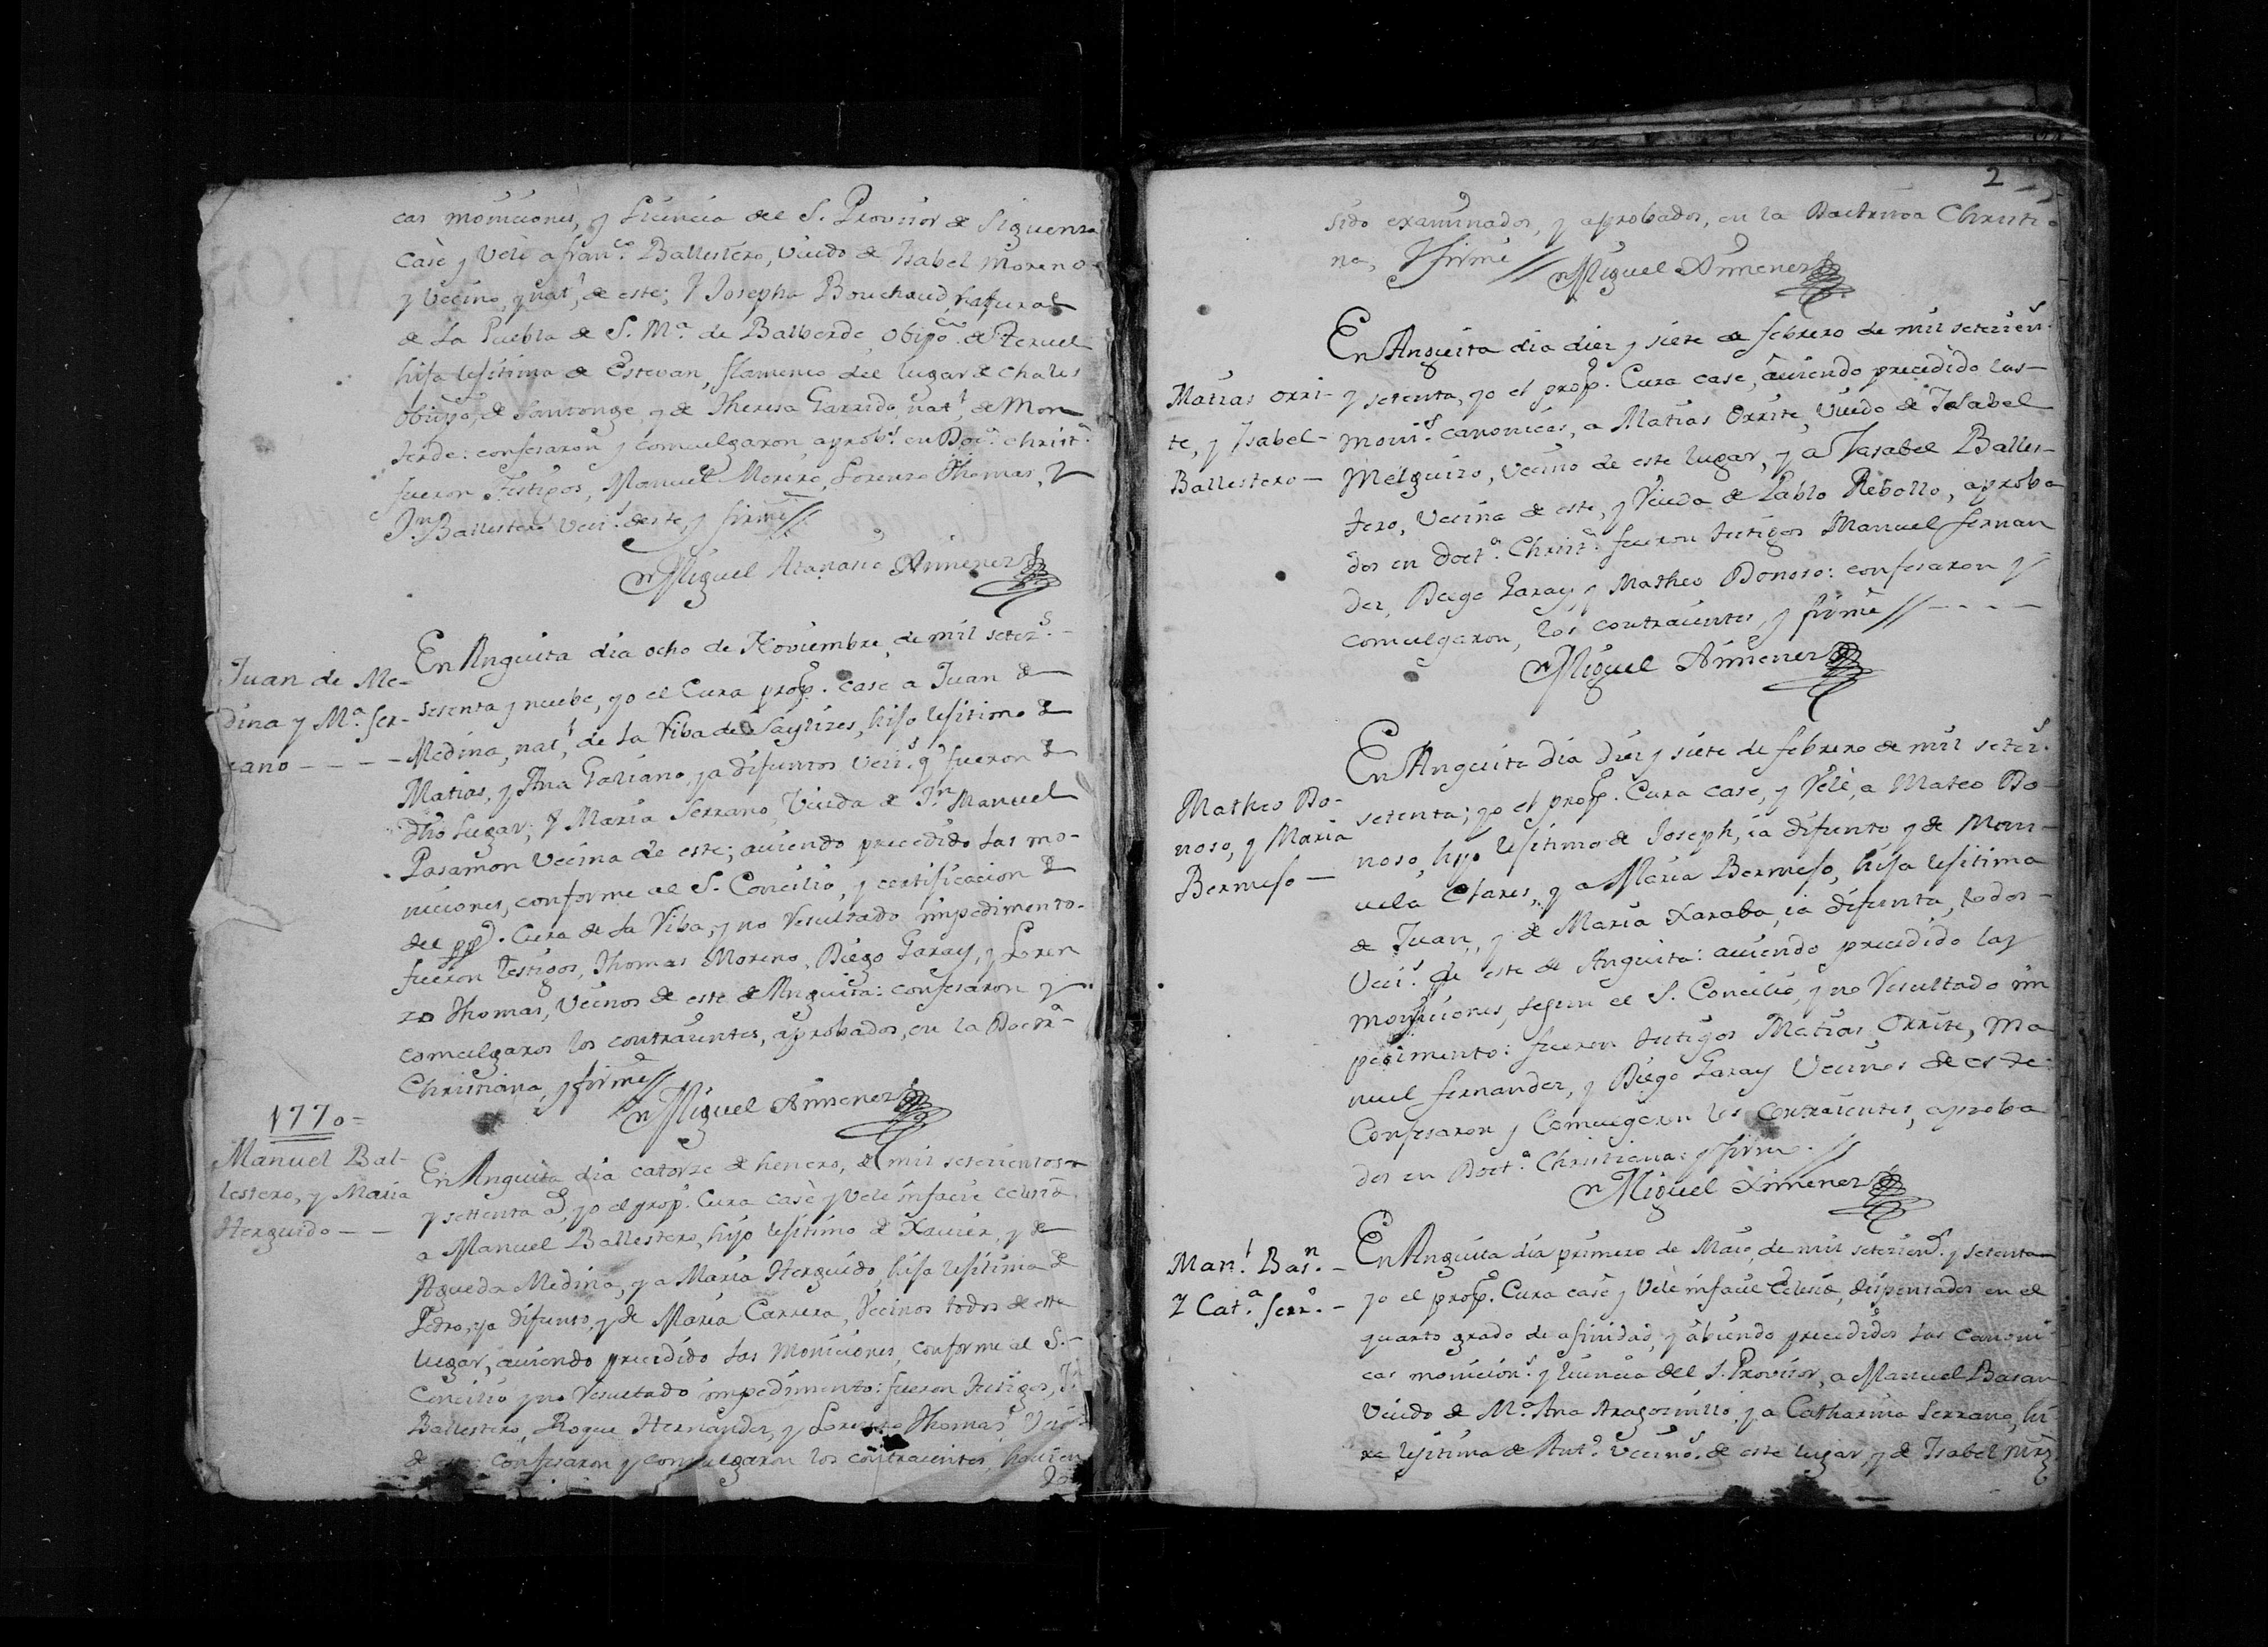 cas moniciones, y licencia del S. Provisor de Siguenza
Casè y Velè a franco. Ballestero, viudo de Isabel Moreno
y Vecino, y natl. de este; Y Josepha Bouchaud, natural
de La Puebla de S. Ma. de Balberde, Obispo. de Teruel
hija lesitima de Estevan, flamenco del lugar de Chales
Obispo. de Santonge, y de Theresa Garrido, natl. de Mon
terde: confesaron y comulgaron aprobs. en Doca. christa.
fueron testigos, Manuel Moreno, Lorenzo Thomas, Y
Jn. Ballestero Vecis. deste, y firmè //
Miguel Atanasio Ximenez
Juan de Me-
dina y Ma. Ser-
rano - - - -
En Anguita dia ocho de Noviembre, de mil setezs.
sesenta y nuebe, yo el Cura propo. case a Juan de
Medina, natl. de La Riba de Saylizes, hijo lesitimo de
Matias, y Ana Galiano, ya difuntos Vecis. qe fueron de
dho Lugar; Y Maria Serrano, Viuda de Jn. Manuel
Pasamon Vecina de este; aviendo precedido las mo-
niciones, conforme al S. Concilio, y certificacion de
del ppo. Cura de La Riba, y no Resultado impedimento.
fueron testigos, Thomas Moreno, Diego Garay, y Loren
zo Thomas, Vecinos de este de Anguita: confesaron y
comulgaron los contraientes, aprobados, en la Doctra.
Christiana, y firmè //
Miguel Ximenez
1770=
Manuel Bal-
lestero, y Maria
Herguido - -
En Anguita dia catorze de henero, de mil setecientos
y settenta as, yo el propo. Cura casè y Vele infacie eclesie
a Manuel Ballestero, hijo lesitimo de Xavier, y de
Agueda Medina, y a Maria Herguido, hija lesitima de
Pedro, ya difunto, y de Maria Carrera, Vecinos todos de este
lugar, aviendo precedido las Moniciones, conforme al S.
Concilio y no Resultado impedimento: fueron testigos, Jn.
Ballestero, Roque Hernandez, y Lorenzo Thomas, Vecis.
de este confesaron y comulgaron los contraientes, havien
do
2
sido examinados, y aprobados, en la Doctrina Christia
na, Y firmè //
Miguel Ximenez
Matias Orri-
te, y Isabel
Ballestero -
En Anguita dia diez y siete de febrero de mil seteziens.
y setenta, yo el propo. Cura case, aviendo precedido las
monis. canonicas, a Matias Orrite, Viudo de Isabel
Melguizo, Vecino de este lugar, y a Ysabel Balles-
tero, Vecina de este, y Viuda de Pablo Rebollo, aproba
dos en Docta. Christa. fueron testigos Manuel fernan
dez, Diego Garay, y Matheo Donoso: confesaron y
comulgaron, los contraientes, y firmè // - - - -
Miguel Ximenez
Matheo Do-
noso, y Maria
Bermejo -
En Anguita dia Diez y siete de febrero de mil setezs.
setenta; yo el propo. Cura case, y Velè, a Mateo Do-
noso, hijo lesitimo de Joseph, ia difunto y de Man-
uela Clares, y a Maria Bermejo, hija lesitima
de Juan, y de Maria Xaraba, ia difunta, todos
Vecis. de este de Anguita: aviendo precedido las
moniciones, segun el S. Concilio, y no Resultado im
pedimento: fueron testigos Matias Orrite, Ma
nuel fernandez, y Diego Garay Vecinos de este:
Confesaron y Comulgaron los Contraientes, aproba
dos en Docta. Christiana: y firme. //
Miguel Ximenez
Manl. Basn. -
Y Cata. Serro. -
En Anguita dia primero de Maio, de mil setezienos. y setenta
yo el propo. Cura case y Velè infacie Eclesie, dispensados en el
quarto grado de afinidad, y abiendo precedidos las canoni
cas monicions. y licencia del S. Provisor, a Manuel Basan
Viudo de Ma. Ana Aragoncillo, y a Catharina Serrano, hi
xa lesitima de Anto. Vecinos. de este lugar, y de Isabel Mrz